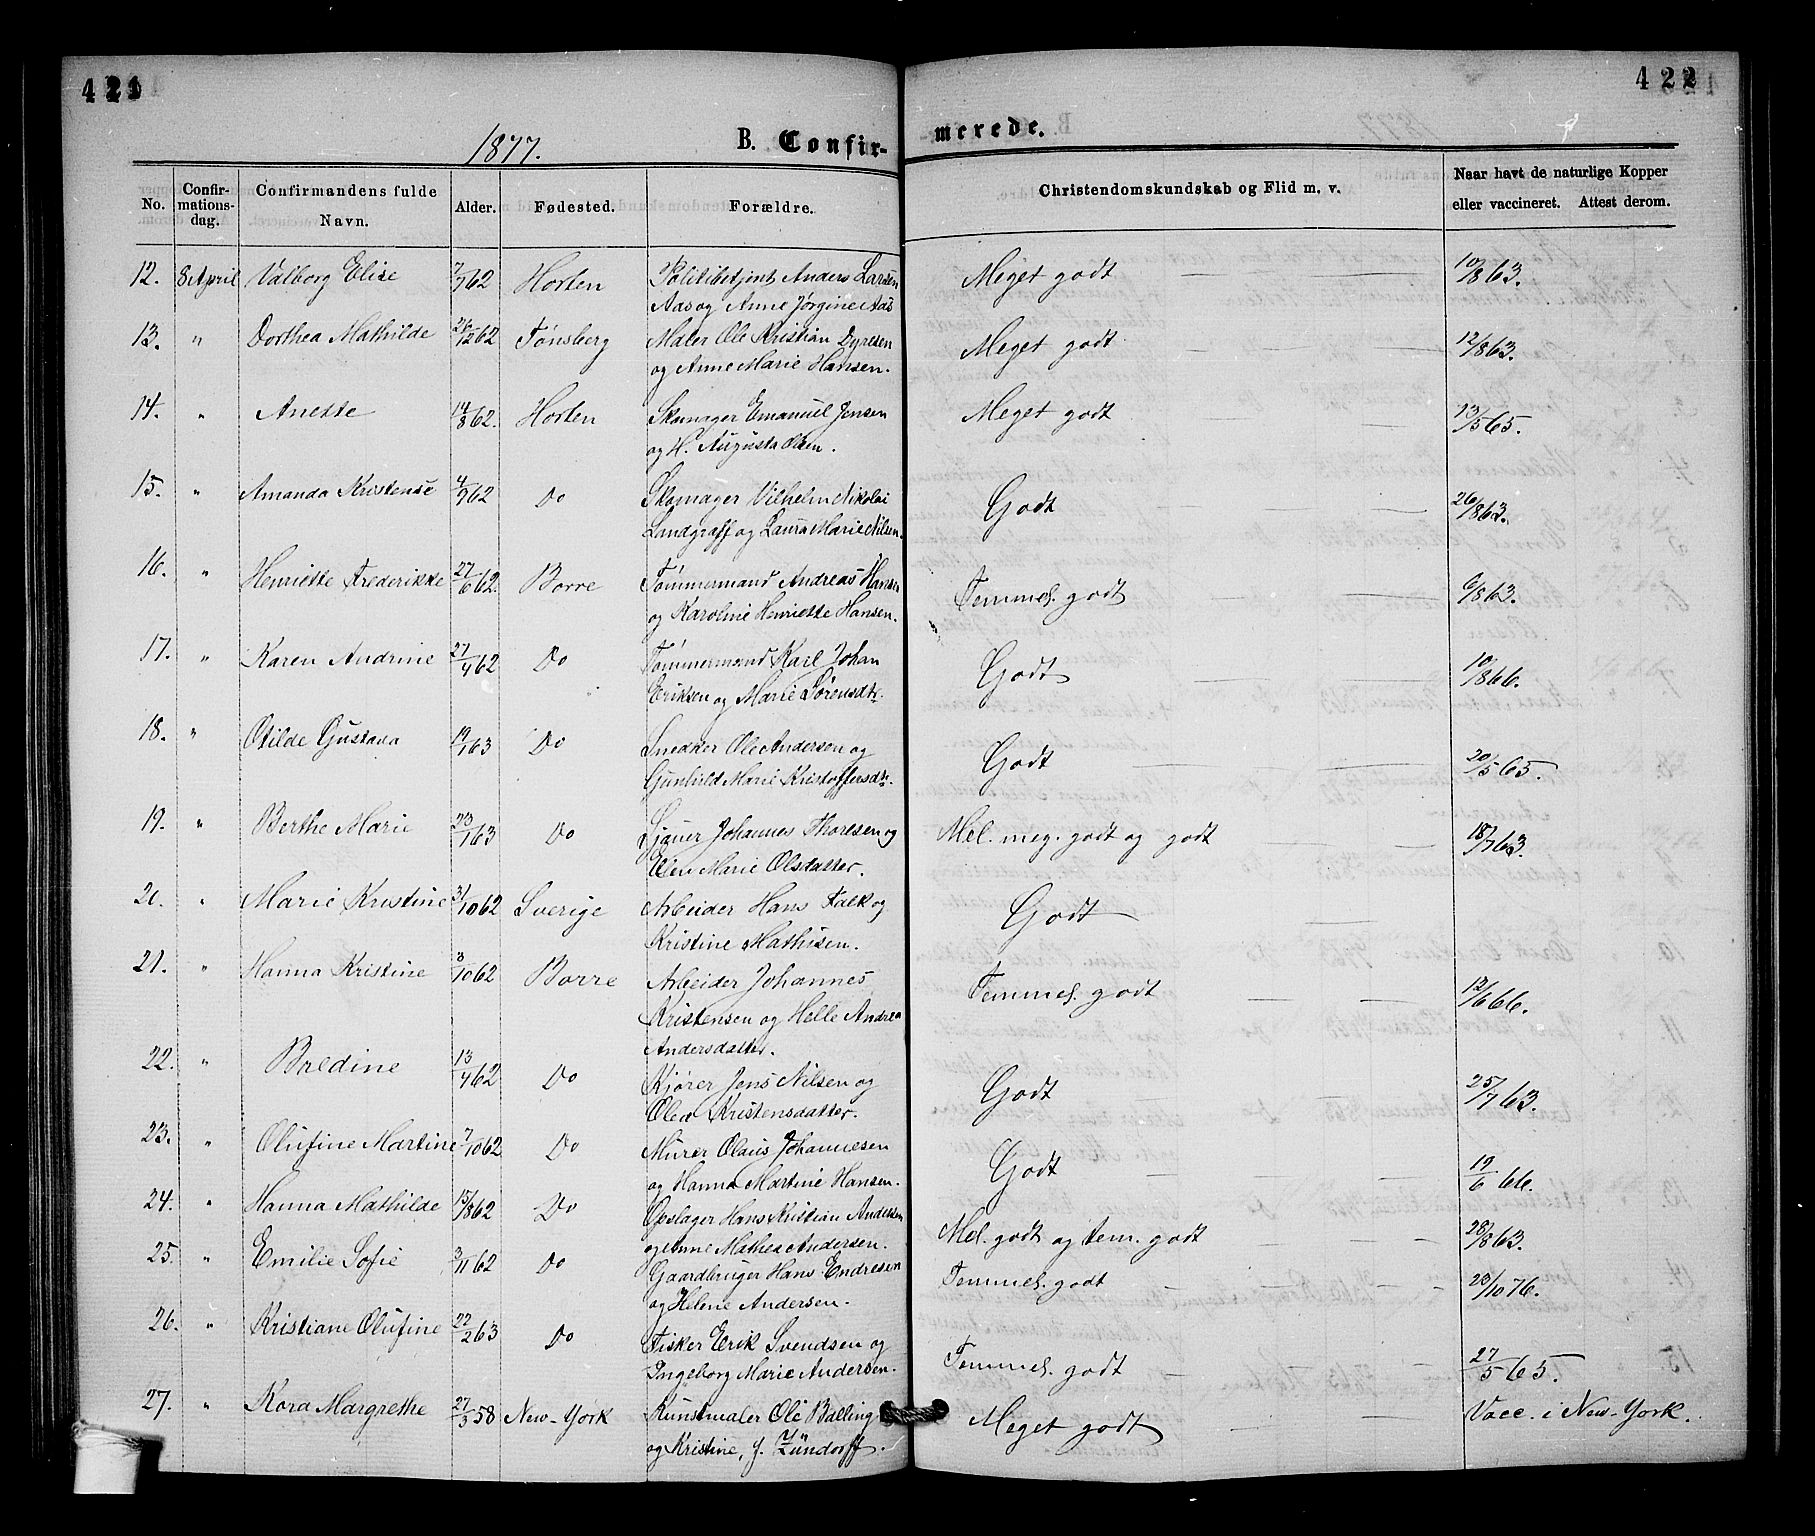 421
422
1877.
B. Confir-
merede.
No.
Confir-
mations-
dag.
Confirmandens fulde
Navn.
Alder.
Fødested.
Forældre.
Christendomskundskab og Flid m. v.
Naar havt de naturlige Kopper
eller vaccineret. Attest derom.
12. 8 April Valborg Elise 7/7 62 Horten Politibetjent Anders Larsen Meget godt — — — 10/8 63.
Aas og Anne Jørgine Aas
13. " Dorthea Mathilde 26/12 62 Tønsberg Maler Ole Kristian Dyresen Meget godt — — — 12/8 63.
og Anne Marie Hansen.
14. " Anette 14/8 62. Horten Skomager Emanuel Jensen Meget godt — — — 13/5 65.
og H. Augusta Olsen.
15. " Amanda Kristense 4/9 62 Do Skomager Vilhelm Nikolai Godt — — — 26/8 63.
Landgraff og Laura Marie Nilsen.
16. " Henriette Frederikke 27/6 62. Borre Tømmermand Andreas Hansen Temmel. godt — — — 6/8 63.
og Karoline Henriette Hansen.
17. " Karen Andrine 27/4 62 Do Tømmermand Karl Johan Godt — — — 10/8 66.
Eriksen og Marie Sørensdtr.
18. " Otilde Gustava 19/1 63 Do Snedker Ole Andersen og Godt — — — 20/5 65.
Gunhild Marie Kristoffersdtr.
19. " Berthe Marie 23/1 63 Do Sjauer Johannes Thoresen og Mel. meg. godt og godt — — 18/7 63.
Elen Marie Olsdatter.
20. " Marie Kristine 31/10 62 Sverige Arbeider Hans Falk og Godt — — —
Kristine Mathisen.
21. " Hanna Kristine 3/10 62 Borre Arbeider Johannes Temmel. godt — — 12/6 66.
Kristensen og Helle Andrea
Andersdatter.
22. " Baldine 13/4 62 Do Kjører Jens Nilsen og Godt — — — 25/7 63.
Olea Kristensdatter.
23. " Olufine Martine 7/10 62 Do Murer Olaus Johannesen Godt — — — 19/6 66.
og Hanna Martine Hansen.
24. " Hanna Mathilde 15/8 62 Do Opslager Hans Kristian Andersen Mel. godt og tem. godt — — 28/8 63.
og Anne Mathea Andersen.
25. " Emilie Sofie 3/11 62 Do Gaardbruger Hans Endresen Temmel. godt — — — 23/10 76.
og Helene Andersen.
26. " Kristiane Olufine 22/2 63 Do Fisker Erik Svendsen og Temmel. godt — — — 27/5 65.
Ingeborg Marie Andersen.
27. " Kora Margrethe 27/3 58 New-York Kunstmaler Ole Balling Meget godt — — — Vacc. i New-York.
og Kristine, f. Zündorff.